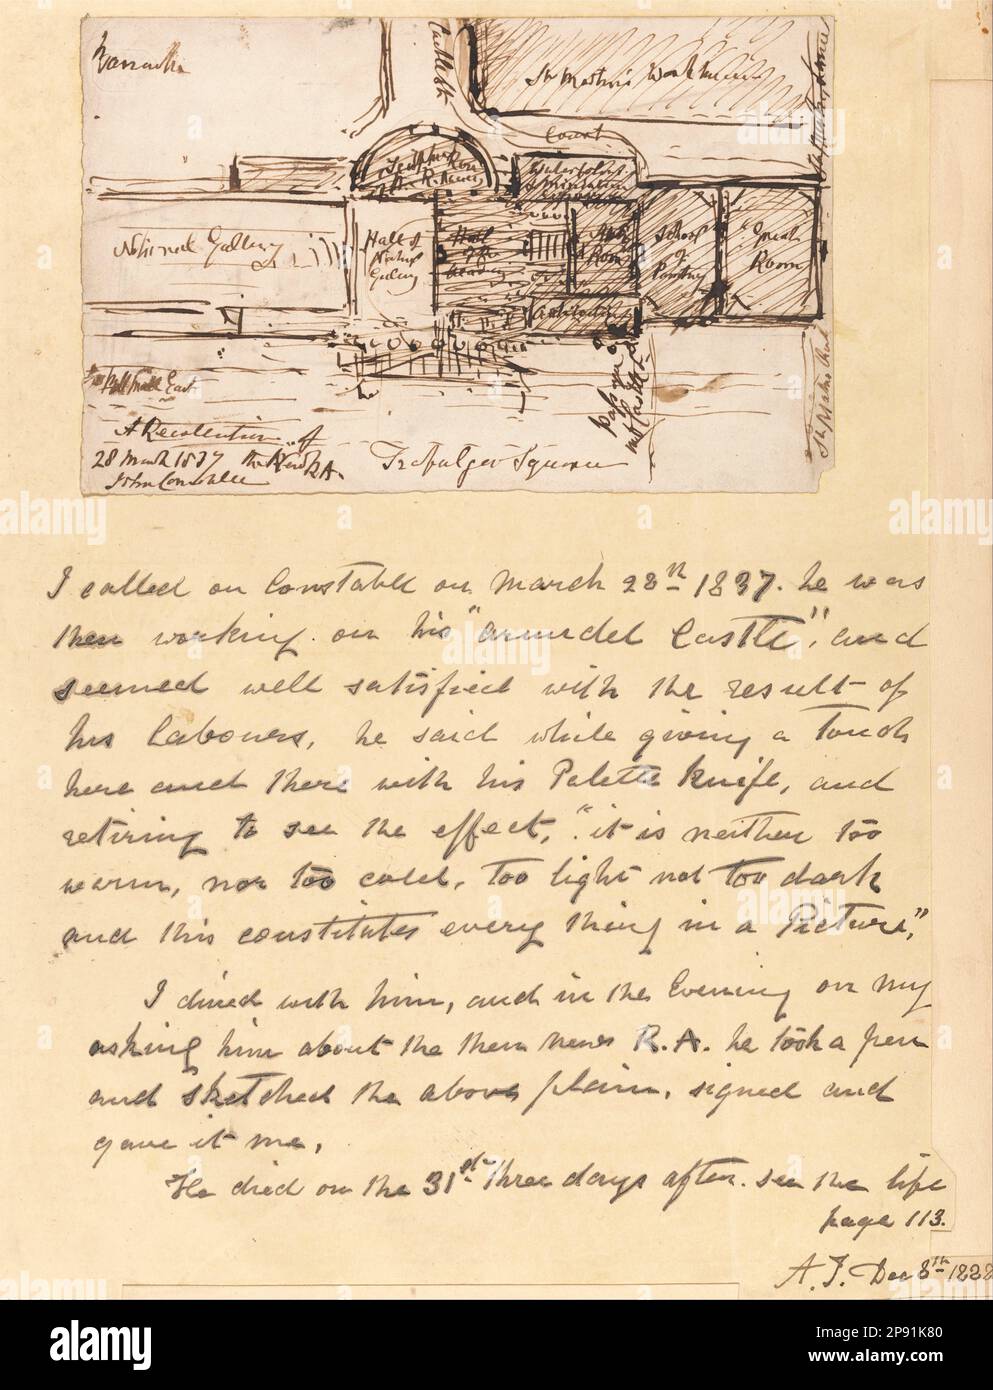 Barracks
Castle St
St Martin's Workhouse
Court
Sculpture Room
National Gallery
Hall of
National
Gallery
Hall
of the
Academy
School
of
Painting
Great
Room
Architecture
passage
into Castle St
Pall Mall East
A Recollection of
28 March 1837 the New RA.
John Constable
Trafalgar Square
I called on Constable on March 28th 1837. he was
then working on his "arundel Castle", and
seemed well satisfied with the result of
his labours, he said while giving a touch
here and there with his Palette knife, and
retiring to see the effect, "it is neither too
warm, nor too cold, too light not too dark
and this constitutes every thing in a Picture,"
I dined with him, and in the Evening on my
asking him about the then new R.A. he took a pen
and sketched the above plain, signed and
gave it me,
He died on the 31st three days after. see the life
page 113.
A. T. Dec 8th 1888
alamy
Image ID: 2P91K80
www.alamy.com